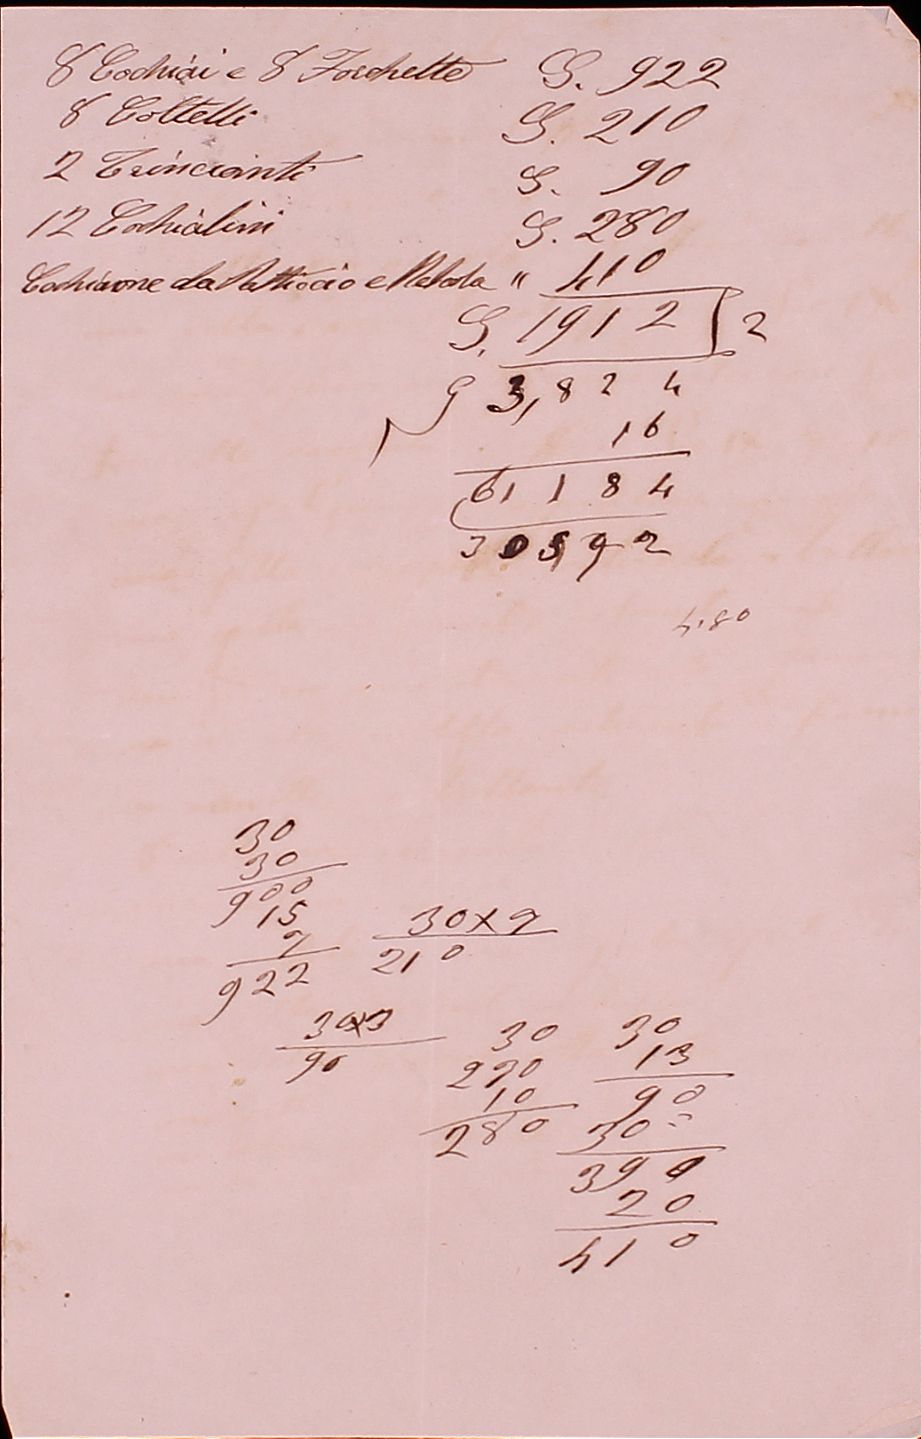 8 Cochiai e 8 Forchette G. 922
8 Coltelli G. 210
2 Trincianti G. 90
12 Cochialini G. 280
Cochiarone da e " 410
G. 1912 2
G 3,824
16
61184
30592
4.80
30
30
900
15
7
922
30x7
210
30x3
90
30
270
10
280
30
13
90
30
390
20
410